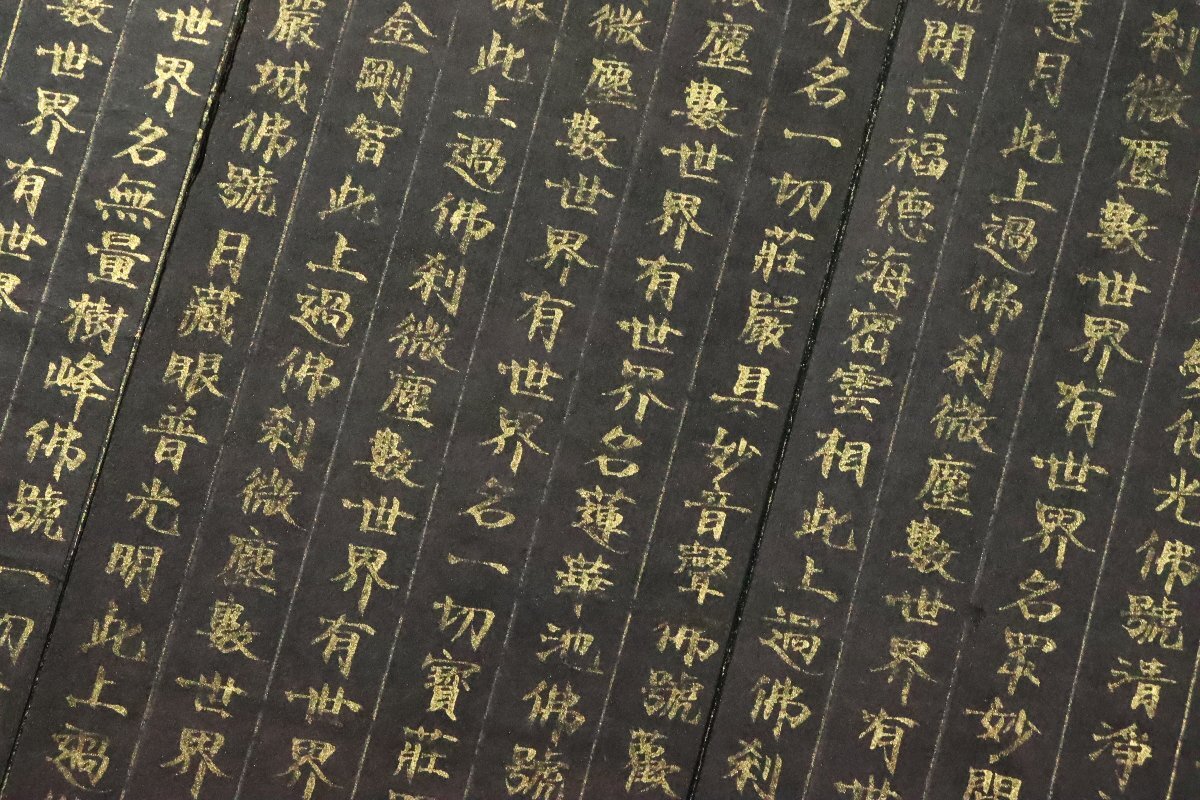 化光佛號清淨
刹微塵數世界有世界名眾妙間
慧月此上過佛刹微塵數世界有世
號開示福德海密雲相此上過佛刹
界名一切莊嚴具妙音聲佛號歡
微塵數世界有世界名蓮華池佛號
微塵數世界有世界名一切寶莊
眼此上過佛刹微塵數世界有世界
金剛智此上過佛刹微塵數世界
嚴城佛號月藏眼普光明此上過
世界名無量樹峰佛號一切
數世界有世界